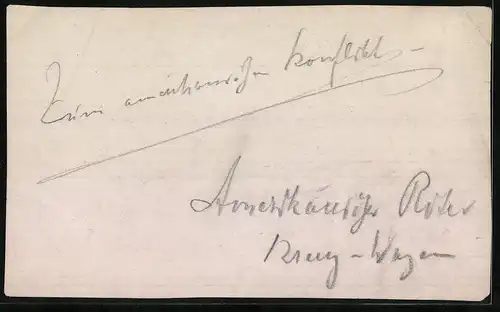 Zum amerikanischen Konflikt –
Amerikanischer Roter
Kreuz-Wagen